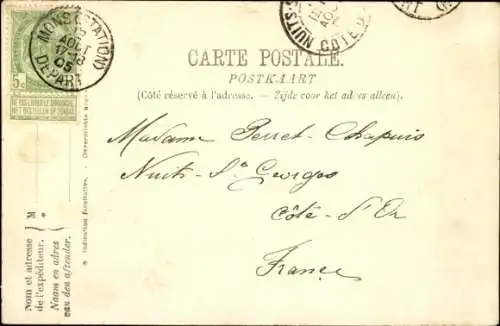 MONS (STATION)
AOUT
17-18
05
DEPART
5c
NE PAS LIVRER LE DIMANCHE
NIET BESTELLEN OP ZONDAG
NUITS-S
COTE D
CARTE POSTALE.
POSTKAART
(Côté réservé à l'adresse. — Zijde voor het adres alleen).
Madame Perret-Chapuis
Nuits-St Georges
Côte-d'Or
France
M
Nom et adresse
de l'expéditeur.
Naam en adres
van den afzender.